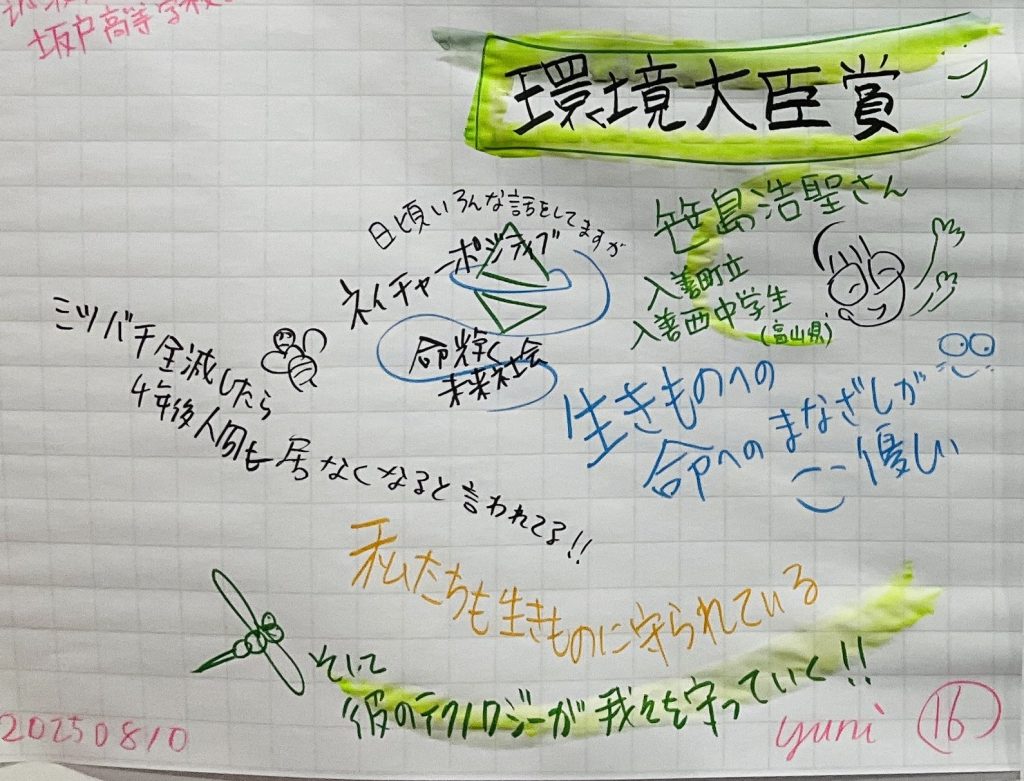 坂戸高等学校
環境大臣賞
笹島浩聖さん
入善町立
入善西中学生
(富山県)
日頃いろんな話をしてますが
ネイチャーポジティブ
命輝く
未来社会
ミツバチ全滅したら
4年後人間も居なくなると言われてる!!
生きものへの
命へのまなざしが
優しい
私たちも生きものに守られている
そして
彼のテクノロジーが我々を守っていく!!
20250810
yuni 16